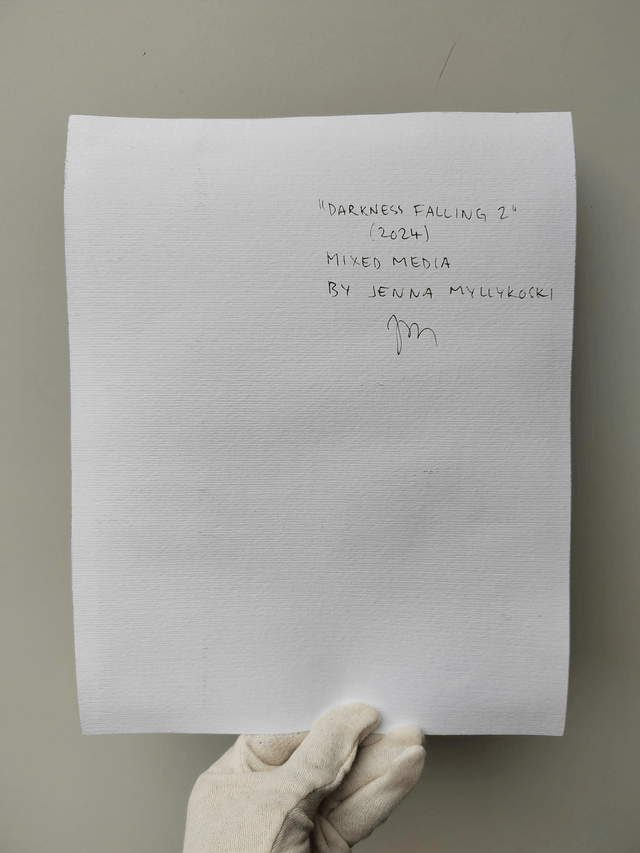 "DARKNESS FALLING 2"
(2024)
MIXED MEDIA
BY JENNA MYLLYKOSKI